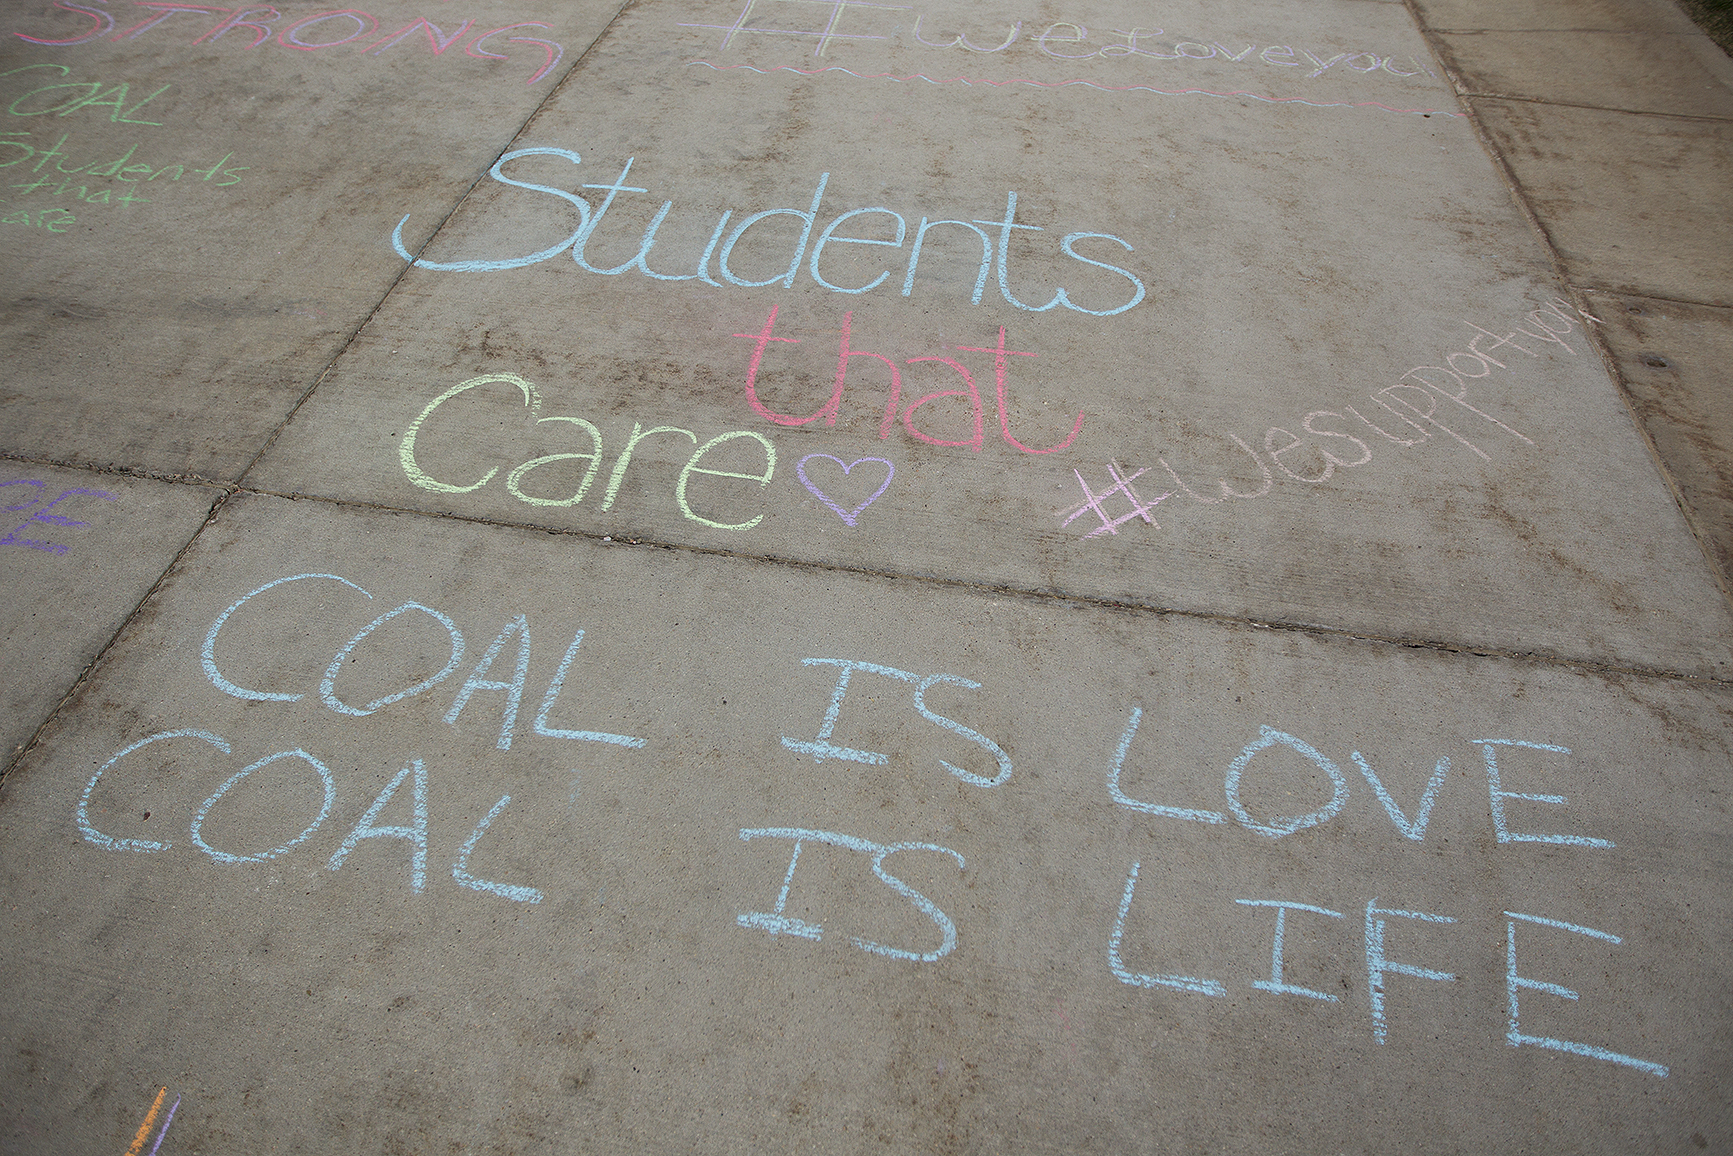 STRONG
COAL
Students
that
Care
#weLoveyou
Students
that
Care
#Wesupportyou
PE
COAL IS LOVE
COAL IS LIFE